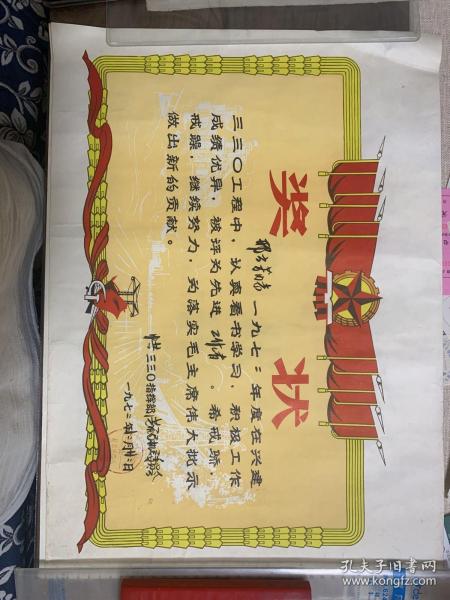 奖状
同志一九七二年度在兴建
三三〇工程中，认真看书学习，积极工作
成绩优异，被评为先进。希戒骄、
戒躁，继续努力，为落实毛主席伟大批示
做出新的贡献。
三三〇指挥部
一九七三年
孔夫子旧书网
www.kongfz.com